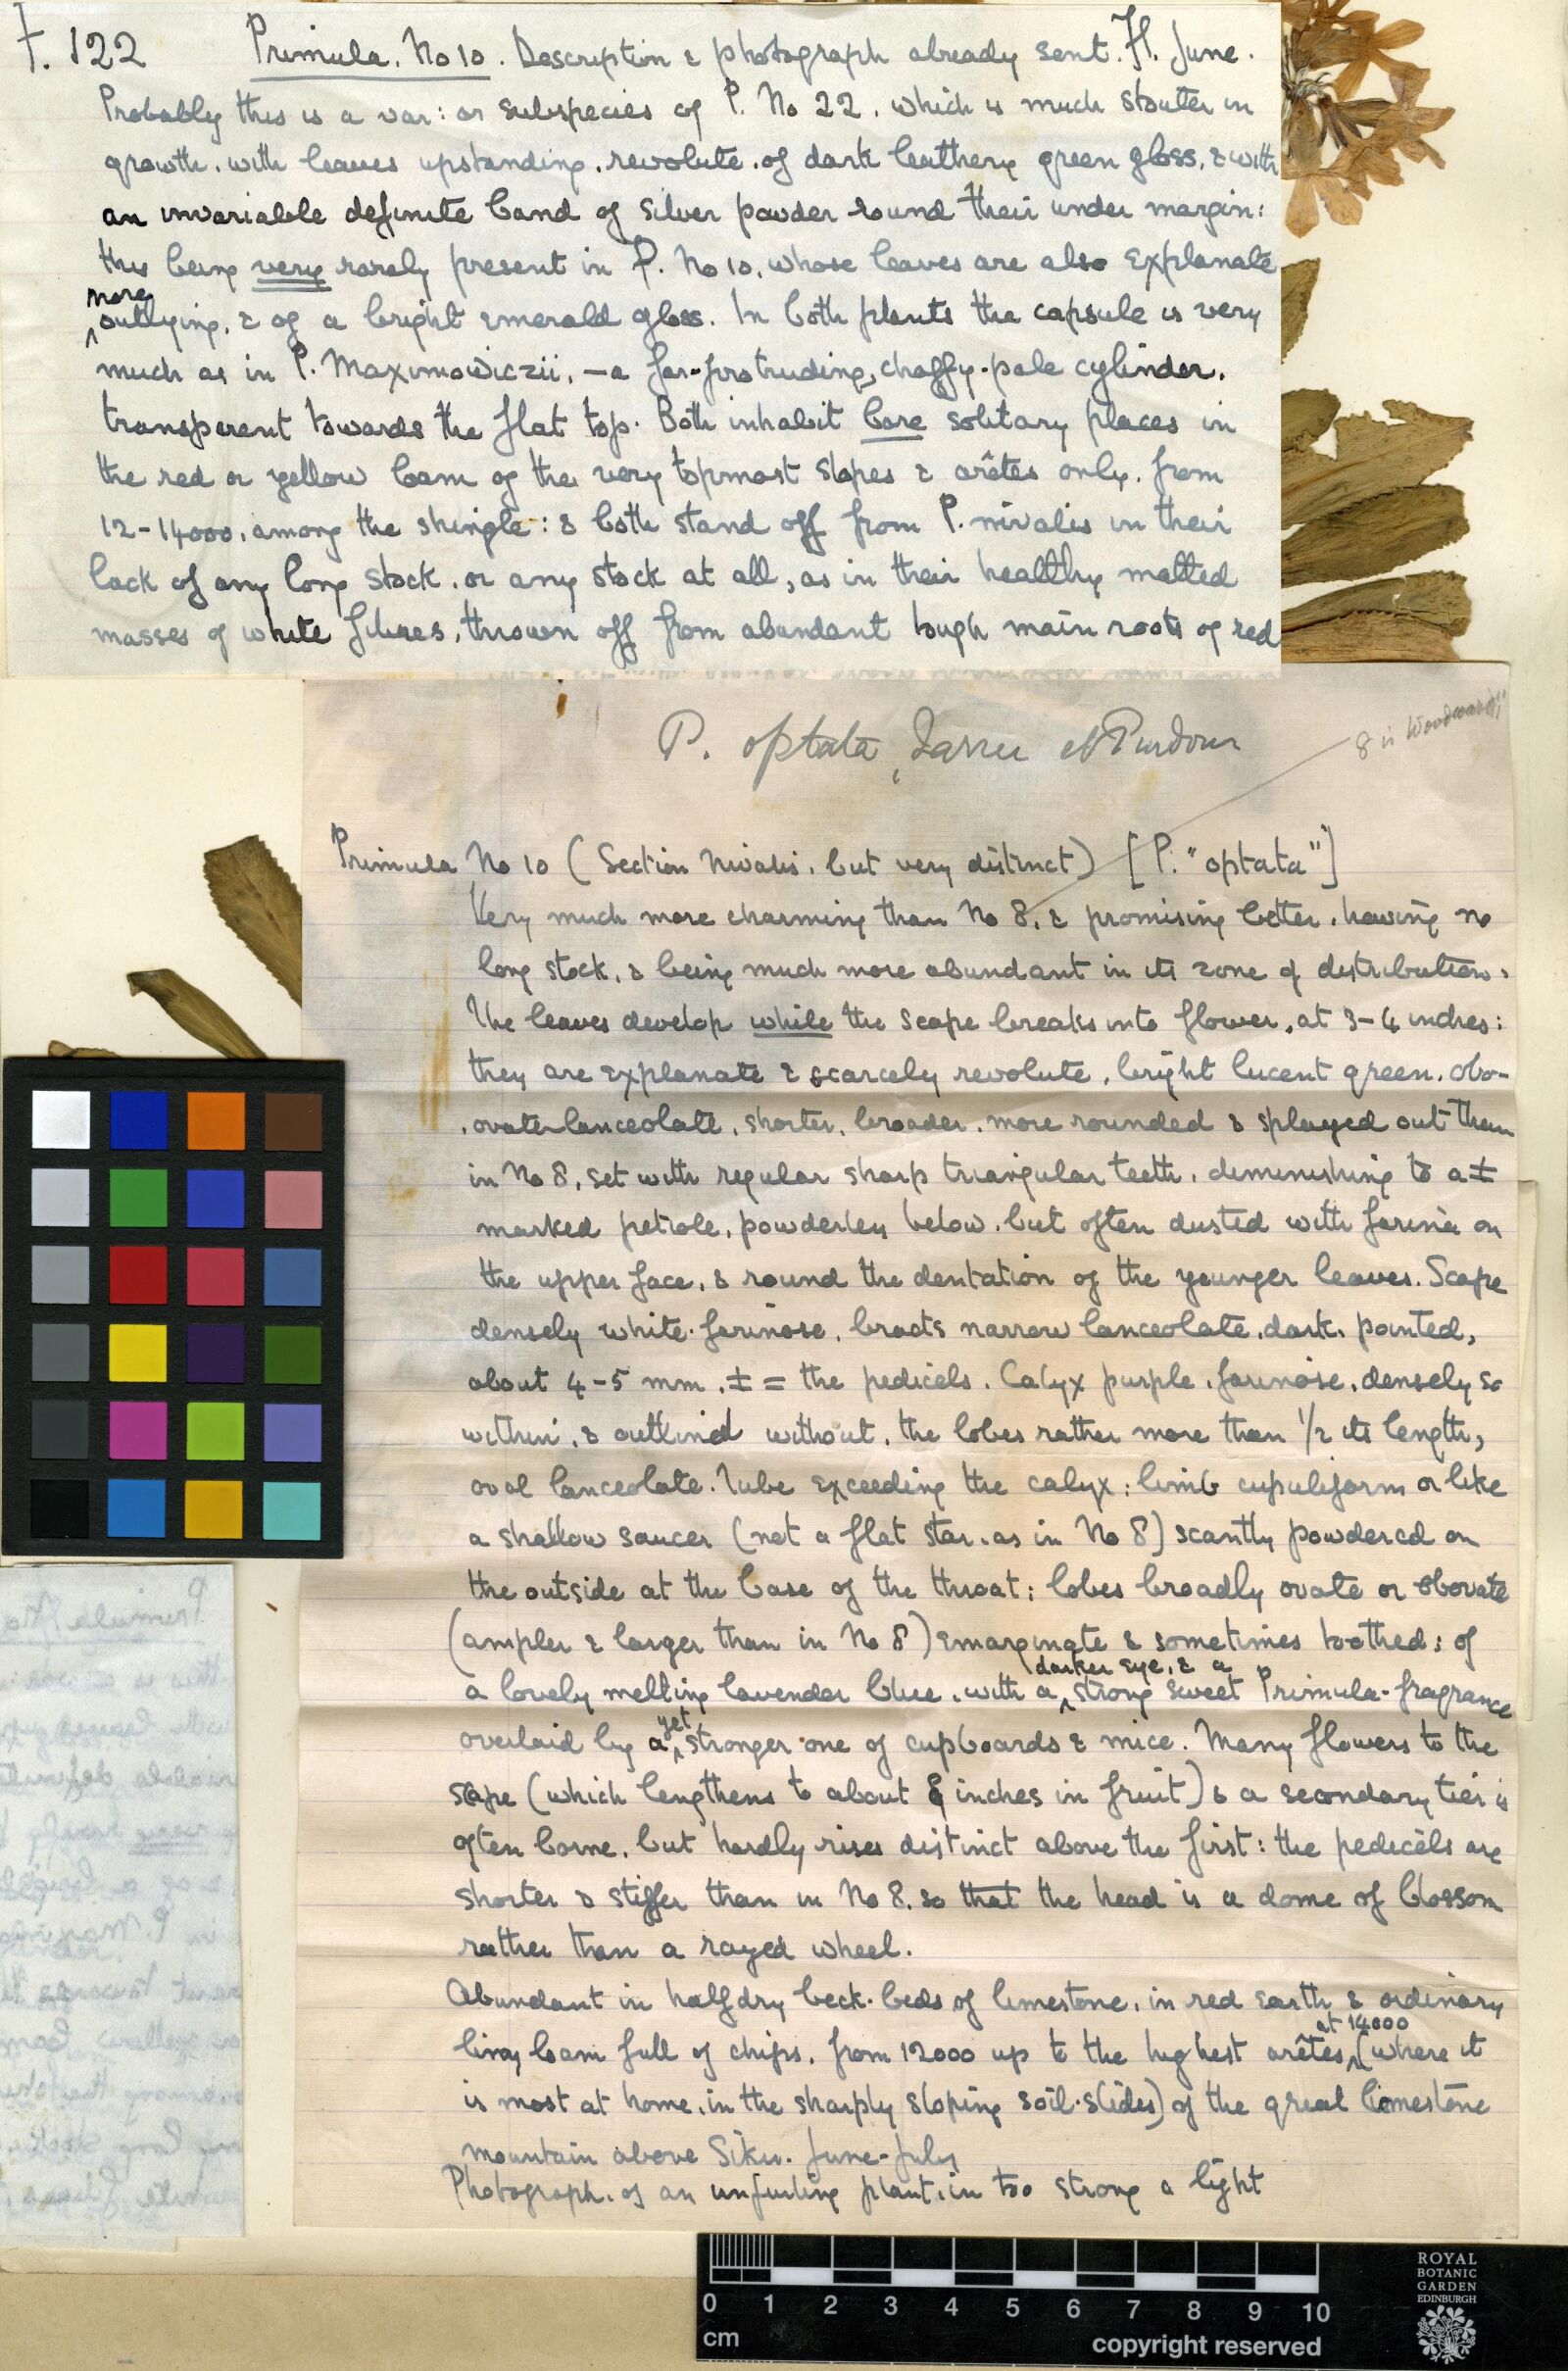 F. 122 Primula. No 10. Description & photograph already sent. Fl. June.
Probably this is a var: or subspecies of P. No 22, which is much stouter in
growth, with leaves upstanding, revolute, of dark leathery green gloss, & with
an invariable definite band of silver powder round their under margin:
this being very rarely present in P. No 10, whose leaves are also explanate
more
outlying, & of a bright emerald gloss. In both plants the capsule is very
much as in P. Maximowiczii, – a far-protruding, chaffy-pale cylinder,
transparent towards the flat top. Both inhabit bare solitary places in
the red or yellow loam of the very topmost slopes & arêtes only, from
12-14000, among the shingle: & both stand off from P. nivalis in their
lack of any long stock, or any stock at all, as in their healthy matted
masses of white fibres, thrown off from abundant tough main roots of red
P. optata, Farrer et Purdom
8 is Woodwardii
Primula No 10 (Section Nivalis, but very distinct) [P. "optata"]
Very much more charming than No 8, & promising better, having no
long stock, & being much more abundant in its zone of distribution.
The leaves develop while the scape breaks into flower, at 3-4 inches:
they are explanate & scarcely revolute, bright lucent green, obo-
ovate-lanceolate, shorter, broader, more rounded & splayed out than
in No 8, set with regular sharp triangular teeth, diminishing to a ±
marked petiole, powderless below, but often dusted with farina on
the upper face, & round the dentation of the younger leaves. Scape
densely white-farinose, bracts narrow lanceolate, dark, pointed,
about 4-5 mm, ± = the pedicels. Calyx purple, farinose, densely so
within, & outlined without, the lobes rather more than 1/2 its length,
oval lanceolate. Tube exceeding the calyx; limb cupuliform or like
a shallow saucer (not a flat star, as in No 8) scantly powdered on
the outside at the base of the throat; lobes broadly ovate or obovate
(ampler & larger than in No 8) emarginate & sometimes toothed; of
darker eye, & a
a lovely melting lavender blue, with a strong sweet Primula-fragrance
yet
overlaid by a stronger one of cupboards & mice. Many flowers to the
scape (which lengthens to about 8 inches in fruit) & a secondary tier is
often borne, but hardly rises distinct above the first: the pedicels are
shorter & stiffer than in No 8, so that the head is a dome of blossom
rather than a rayed wheel.
Abundant in half dry beck-beds of limestone, in red earth & ordinary
at 14000
limy loam full of chips, from 12000 up to the highest arêtes, (where it
is most at home, in the sharply sloping soil-slides) of the great limestone
mountain above Siku. June-July
Photograph, of an unfurling plant, in too strong a light
0 1 2 3 4 5 6 7 8 9 10
cm
copyright reserved
ROYAL
BOTANIC
GARDEN
EDINBURGH